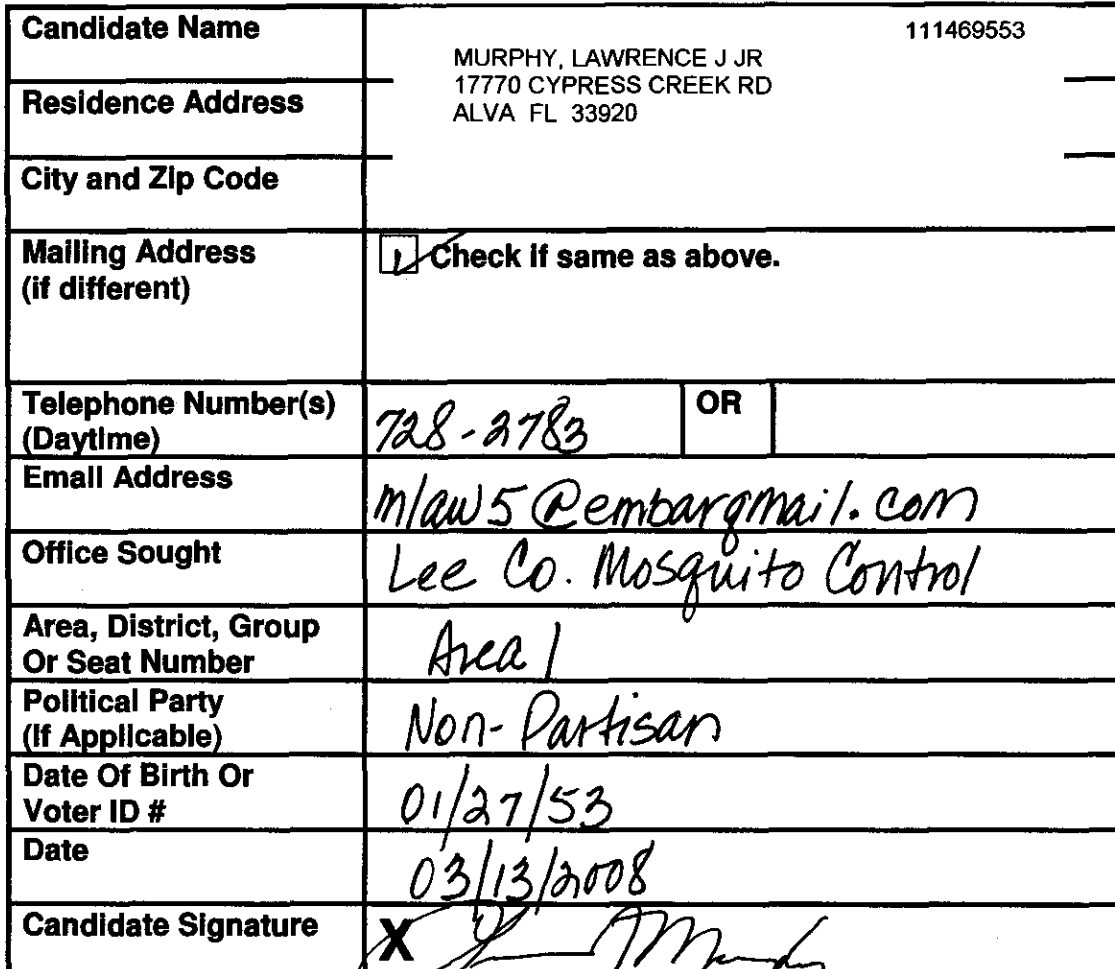 Candidate Name 111469553
MURPHY, LAWRENCE J JR
Residence Address 17770 CYPRESS CREEK RD
ALVA FL 33920
City and Zip Code
Mailing Address
(if different)
Check if same as above.
Telephone Number(s)
(Daytime)
728-2783 OR
Email Address
mlaw5@embarqmail.com
Office Sought
Lee Co. Mosquito Control
Area, District, Group
Or Seat Number
Area 1
Political Party
(If Applicable)
Non-Partisan
Date Of Birth Or
Voter ID #
01/27/53
Date
03/13/2008
Candidate Signature
X